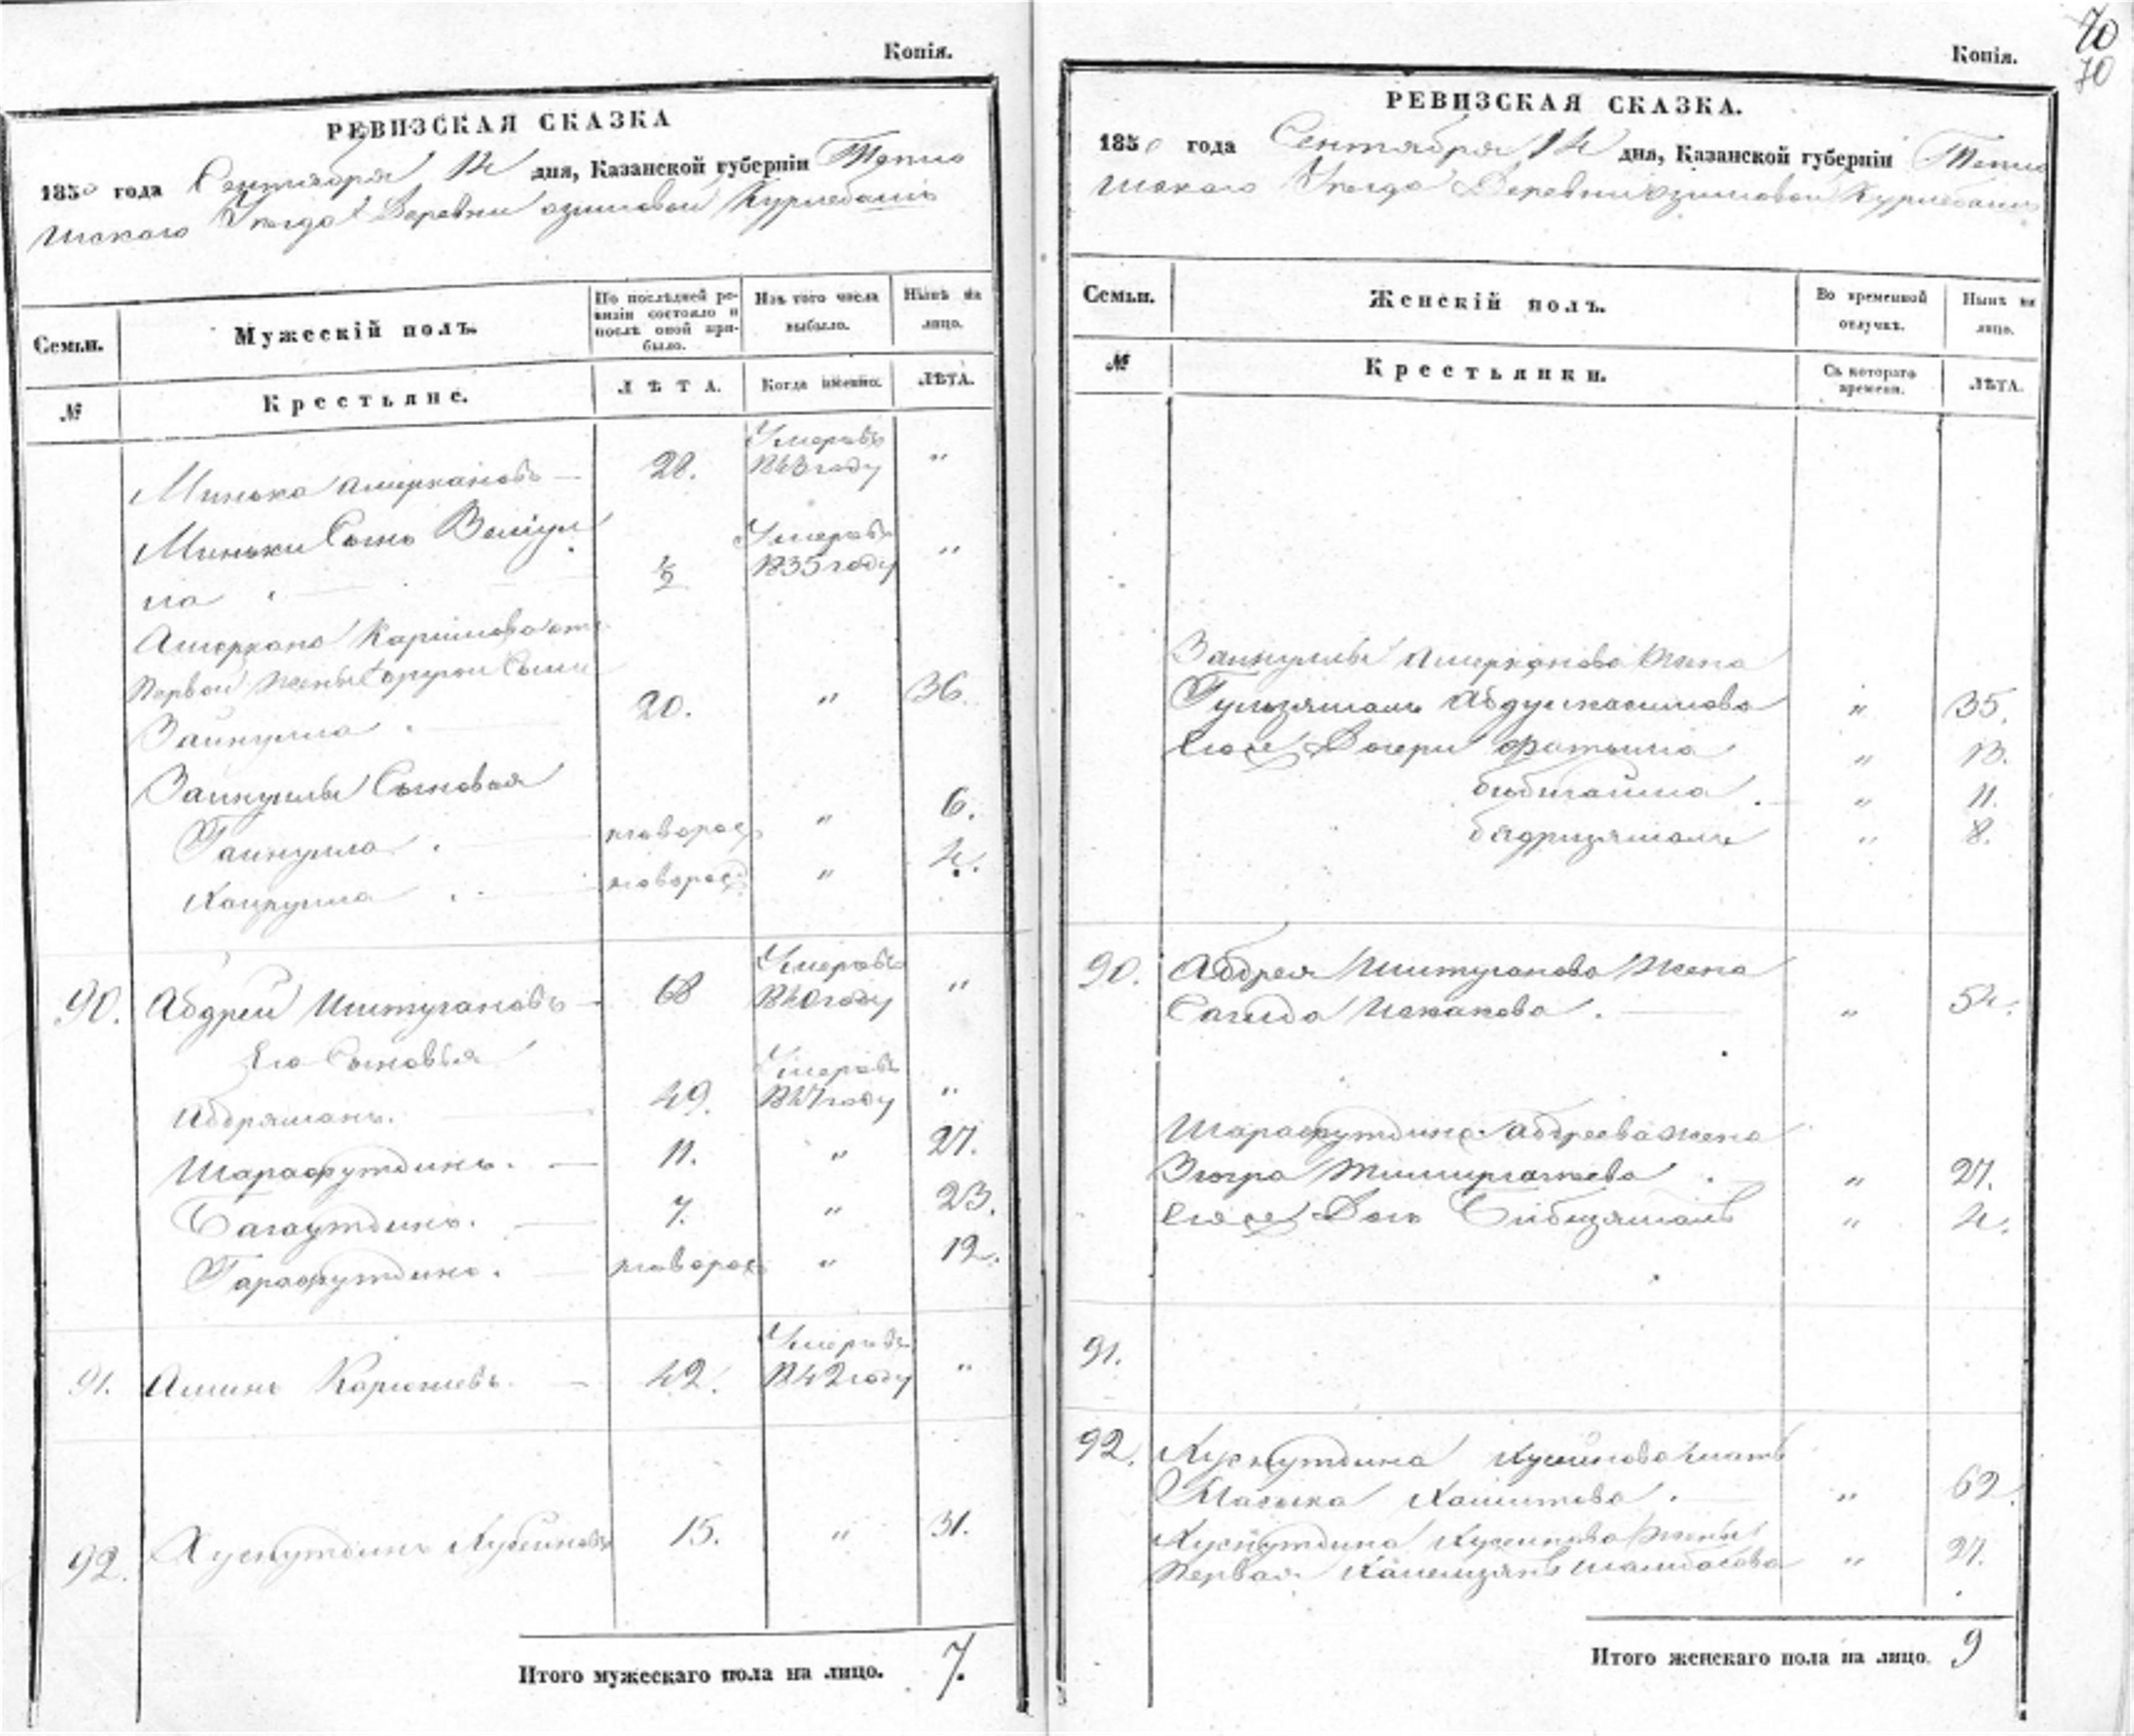 Копія.
РЕВИЗСКАЯ СКАЗКА
1850 года Сентября 14 дня, Казанской губерніи Тетю
шскаго Уезда Деревни
Семьи.
Мужескій полъ.
По послѣдней ре-
визіи состояло и
послѣ оной при-
было.
Изъ того числа
выбыло.
Нынѣ на
лицо.
№
Крестьяне.
ЛѢТА.
Когда именно.
ЛѢТА.
Минька Амерхановъ 20. Умеръ въ 1843 году "
Миньки Сынъ Велiул
ла ½ Умеръ въ 1835 году "
Амерхана Каримова отъ
первой жены другой Сынъ
Зайнулла 20. " 36.
Зайнуллы Сыновья
Гайнулла новорож " 6.
Хайрулла новорож " 4.
90. Абдрей Иштугановъ 68 Умеръ въ 1840 году "
Его Сыновья
Абдряманъ. 49. Умеръ въ 1847 году "
Шарафутдинъ. 11. " 27.
Багаутдинъ. 7. " 23.
Гарафутдинъ. новорож " 12.
91. Аминь 42. Умеръ въ 1842 году "
92. Хуснутдинъ 15. " 31.
Итого мужескаго пола на лицо. 7.
70
70
Копія.
РЕВИЗСКАЯ СКАЗКА.
1850 года Сентября 14 дня, Казанской губерніи Тетю
шскаго Уезда Деревни
Семьи.
Женскій полъ.
Во временной
отлучкѣ.
Нынѣ на
лицо.
№
Крестьянки.
Съ котораго
времени.
ЛѢТА.
Зайнуллы Амерханова Жена
Гульзямаль Абдулкасимова " 35.
Ея же Дочери Фатыма " 13.
бибигайша " 11.
бадризямаль " 8.
90. Абдрея Иштуганова Жена
Сагида Исхакова. " 54.
Шарафутдина Абдреева жена
Зюгра " 27.
Ея же Дочь Бибизямалъ " 4.
91.
92. Хуснутдина мать
Хамитова. " 62.
Хуснутдина жены
Первая " 27.
Итого женскаго пола на лицо. 9